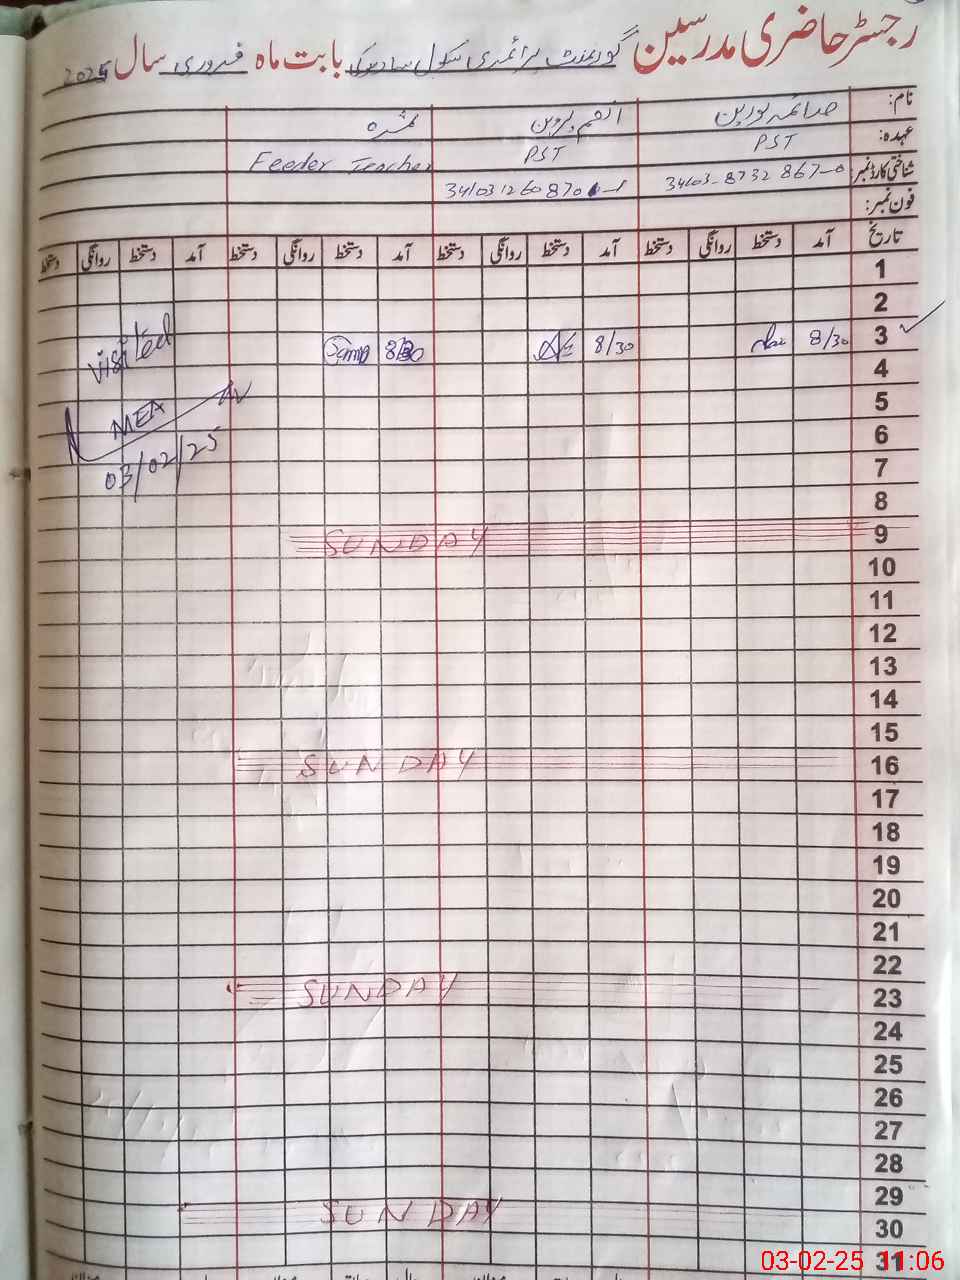 رجسٹر حاضری مدرسین گورنمنٹ پرائمری سکول بابت ماہ فروری سال 2025
نام: صائمہ نورین انعم پروین نمرہ
عہدہ: PST PST Feeder Teacher
شناختی کارڈ نمبر 34103-8732867-0
فون نمبر:
تاریخ آمد دستخط روانگی دستخط آمد دستخط روانگی دستخط آمد دستخط روانگی دستخط آمد دستخط روانگی دستخط
1
2
3 8/30 8/30 8/30 visited
4
5 MEA
6
7 03/02/25
8
9 SUNDAY
10
11
12
13
14
15
16 SUNDAY
17
18
19
20
21
22
23 SUNDAY
24
25
26
27
28
29
30 SUNDAY
31
03-02-25 11:06